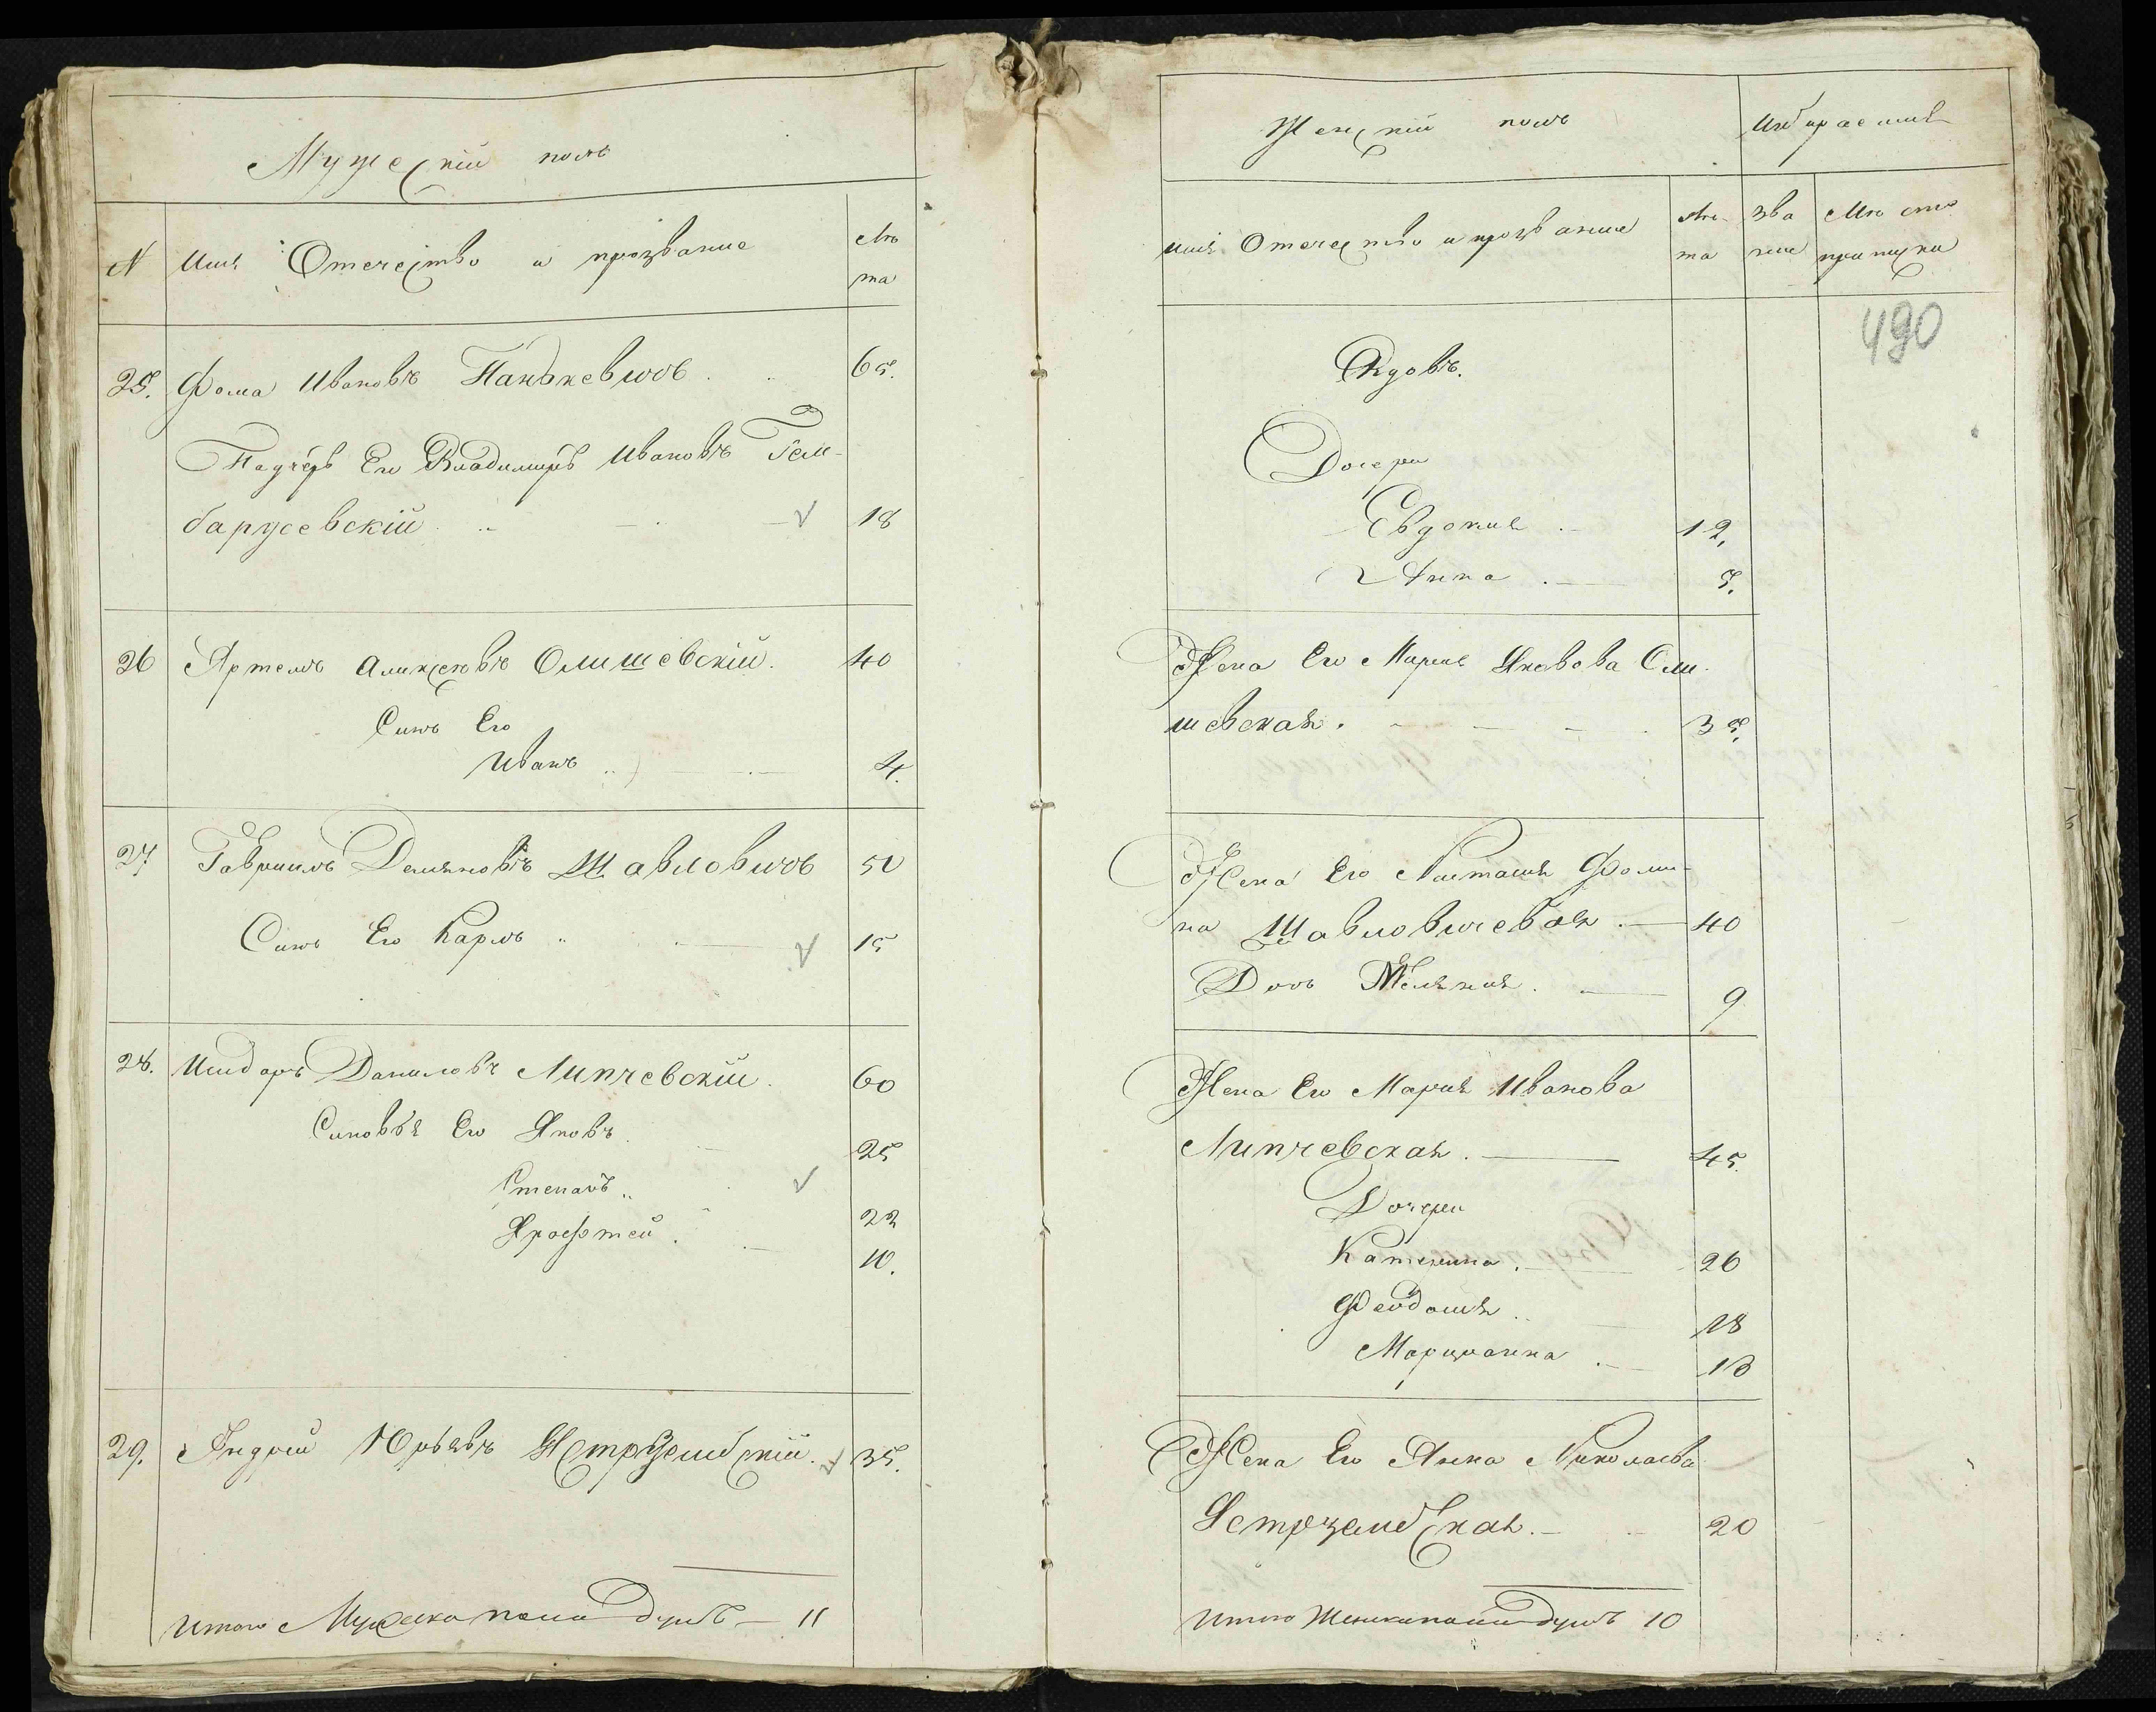 Мужескій полъ
N
Имя Отечество и прозваніе
Лѣ
та
25. Фома Ивановъ Панькевичъ 65.
Его Владимиръ Ивановъ Гем-
барусевскій 18
26 Артемъ Аликсѣевъ Олишевскій. 40
Синъ Его
Иванъ 4.
27 Гавриилъ Демяновъ Шавловичъ 50
Синъ Его Карлъ 15
28. Исидоръ Даниловъ Липчевскій. 60
Синовья Его Яковъ 25
Степанъ 22
10.
29. Андрей Юрьевъ Ястрземскій. 35.
Итого Мужеска пола душъ — 11
Женскій полъ
имя Отечество и прозваніе
Лѣ-
та
Зва
ніе
Мѣсто
приписки
490
Вдовъ.
Дочери
Евдокия 12,
Анна 5.
Жена Его Мария Яковова Оли-
шевская. 35,
Жена Его Настасия Фоми-
на Шавловичевая. 40
Дочъ 9
Жена Его Мария Иванова
Липчевская. 45.
Дочери
Катерина. 26
Феодосия 18
Марцианна 13
Жена Его Анна Николаева
Ястрземская. 20
Итого Женска пола душъ 10